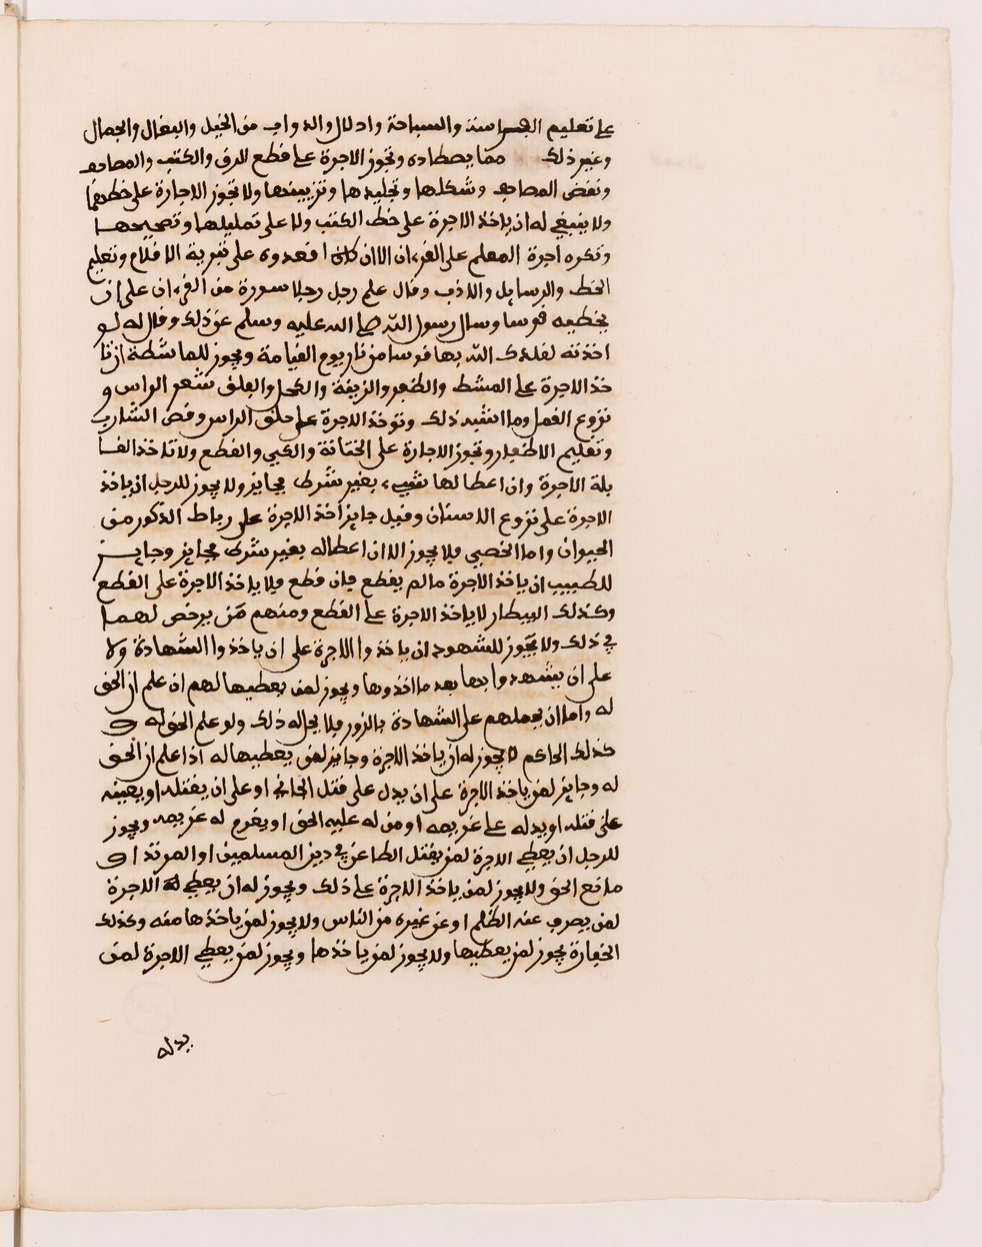 على تعليم الفراسة والسباحة وادلال والدواب من الخيل والبغال والجمال
وغير ذلك مما يصطاده وتجوز الاجرة على قطع للرق والكتب والمصاحف
ونقض المصاحف وشكلها وتجليدها وتزيينها ولا تجوز الاجارة على خطهما
ولا ينبغي له ان ياخذ الاجرة على خط الكتب ولا على تمليلها وتصحيحها
وتكره اجرة المعلم على القرءان الا ان كان اقعدوه على تبرية الاقلام وتعليم
الخط والرسايل والادب وقال علم رجل رجلا سورة من القرءان على ان
يعطيه قوسا وسال رسول الله صلى الله عليه وسلم عن ذلك وقال له لو
اخذته لقلدك الله بها قوسا من نار يوم القيامة ويجوز للماشطة ان تا
خذ الاجرة على المشط والظفر والزيفة والكحل والعلف شعر الراس و
نزوع القمل وما اشبه ذلك وتوخذ الاجرة على حلق الراس وقص الشارب
وتقليم الاظفار وتجوز الاجارة على الختانة والكي والقطع ولا تاخذ القا
بلة الاجرة وان اعطا لها شيء بغير شرط فجايز ولا يجوز للرجل ان ياخذ
الاجرة على نزوع الاسنان وقيل جايز اخذ الاجرة على رباط الذكور من
الحيوان واما الخصي فلا يجوز الا ان اعطاله بغير شرط فجايز وجايز
للطبيب ان ياخذ الاجرة ما لم يقطع فان قطع فلا ياخذ الاجرة على القطع
وكذلك البيطار لا ياخذ الاجرة على القطع ومنهم من يرخص لهما
في ذلك ولا يجوز للشهود ان ياخذوا الاجرة على ان ياخذوا الشهادة ولا
على ان يشهدوا بها بعد ما اخذوها ويجوز لمن يعطيها لهم ان علم ان الحق
له واما ان يحملهم على الشهادة بالزور فلا يحل له ذلك ولو علم الحق له و
كذلك الحاكم لا يجوز له ان ياخذ الاجرة وجايز لمن يعطيها له اذا علم ان الحق
له وجايز لمن ياخذ الاجرة على ان يدل على قتل الجاني او على ان يقتله او يعينه
على قتله او يدله على غريمه او من له عليه الحق او يغرم له غريمه ويجوز
للرجل ان يعطي الاجرة لمن يقتل الطاعن في دين المسلمين او المرتد او
مانع الحق ولا يجوز لمن ياخذ الاجرة على ذلك ويجوز له ان يعطي له الاجرة
لمن يصرف عنه الظلم او عن غيره من الناس ولا يجوز لمن ياخذها منه وكذلك
الخفارة يجوز لمن يعطيها ولا يجوز لمن ياخذها ويجوز لمن يعطي الاجرة لمن
يدله